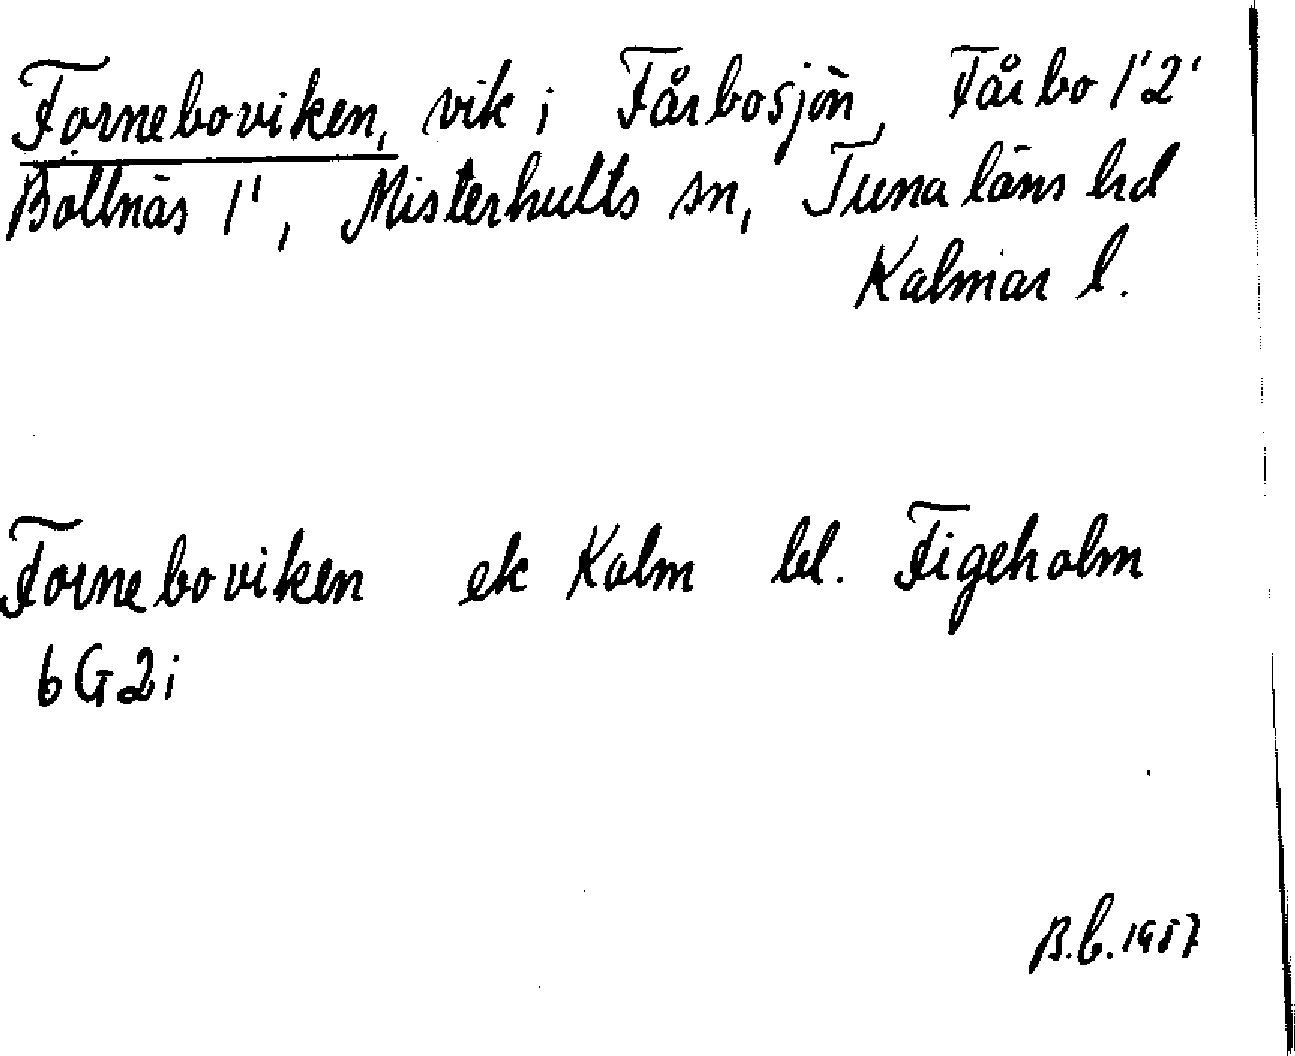 Forneboviken, vik i Fårbosjön, Fårbo 1'2'
Bollnäs 1', Misterhults sn, Tuna läns hd
Kalmar l.
Forneboviken ek Kalm bl. Figeholm
6G2i
B.b. 1987